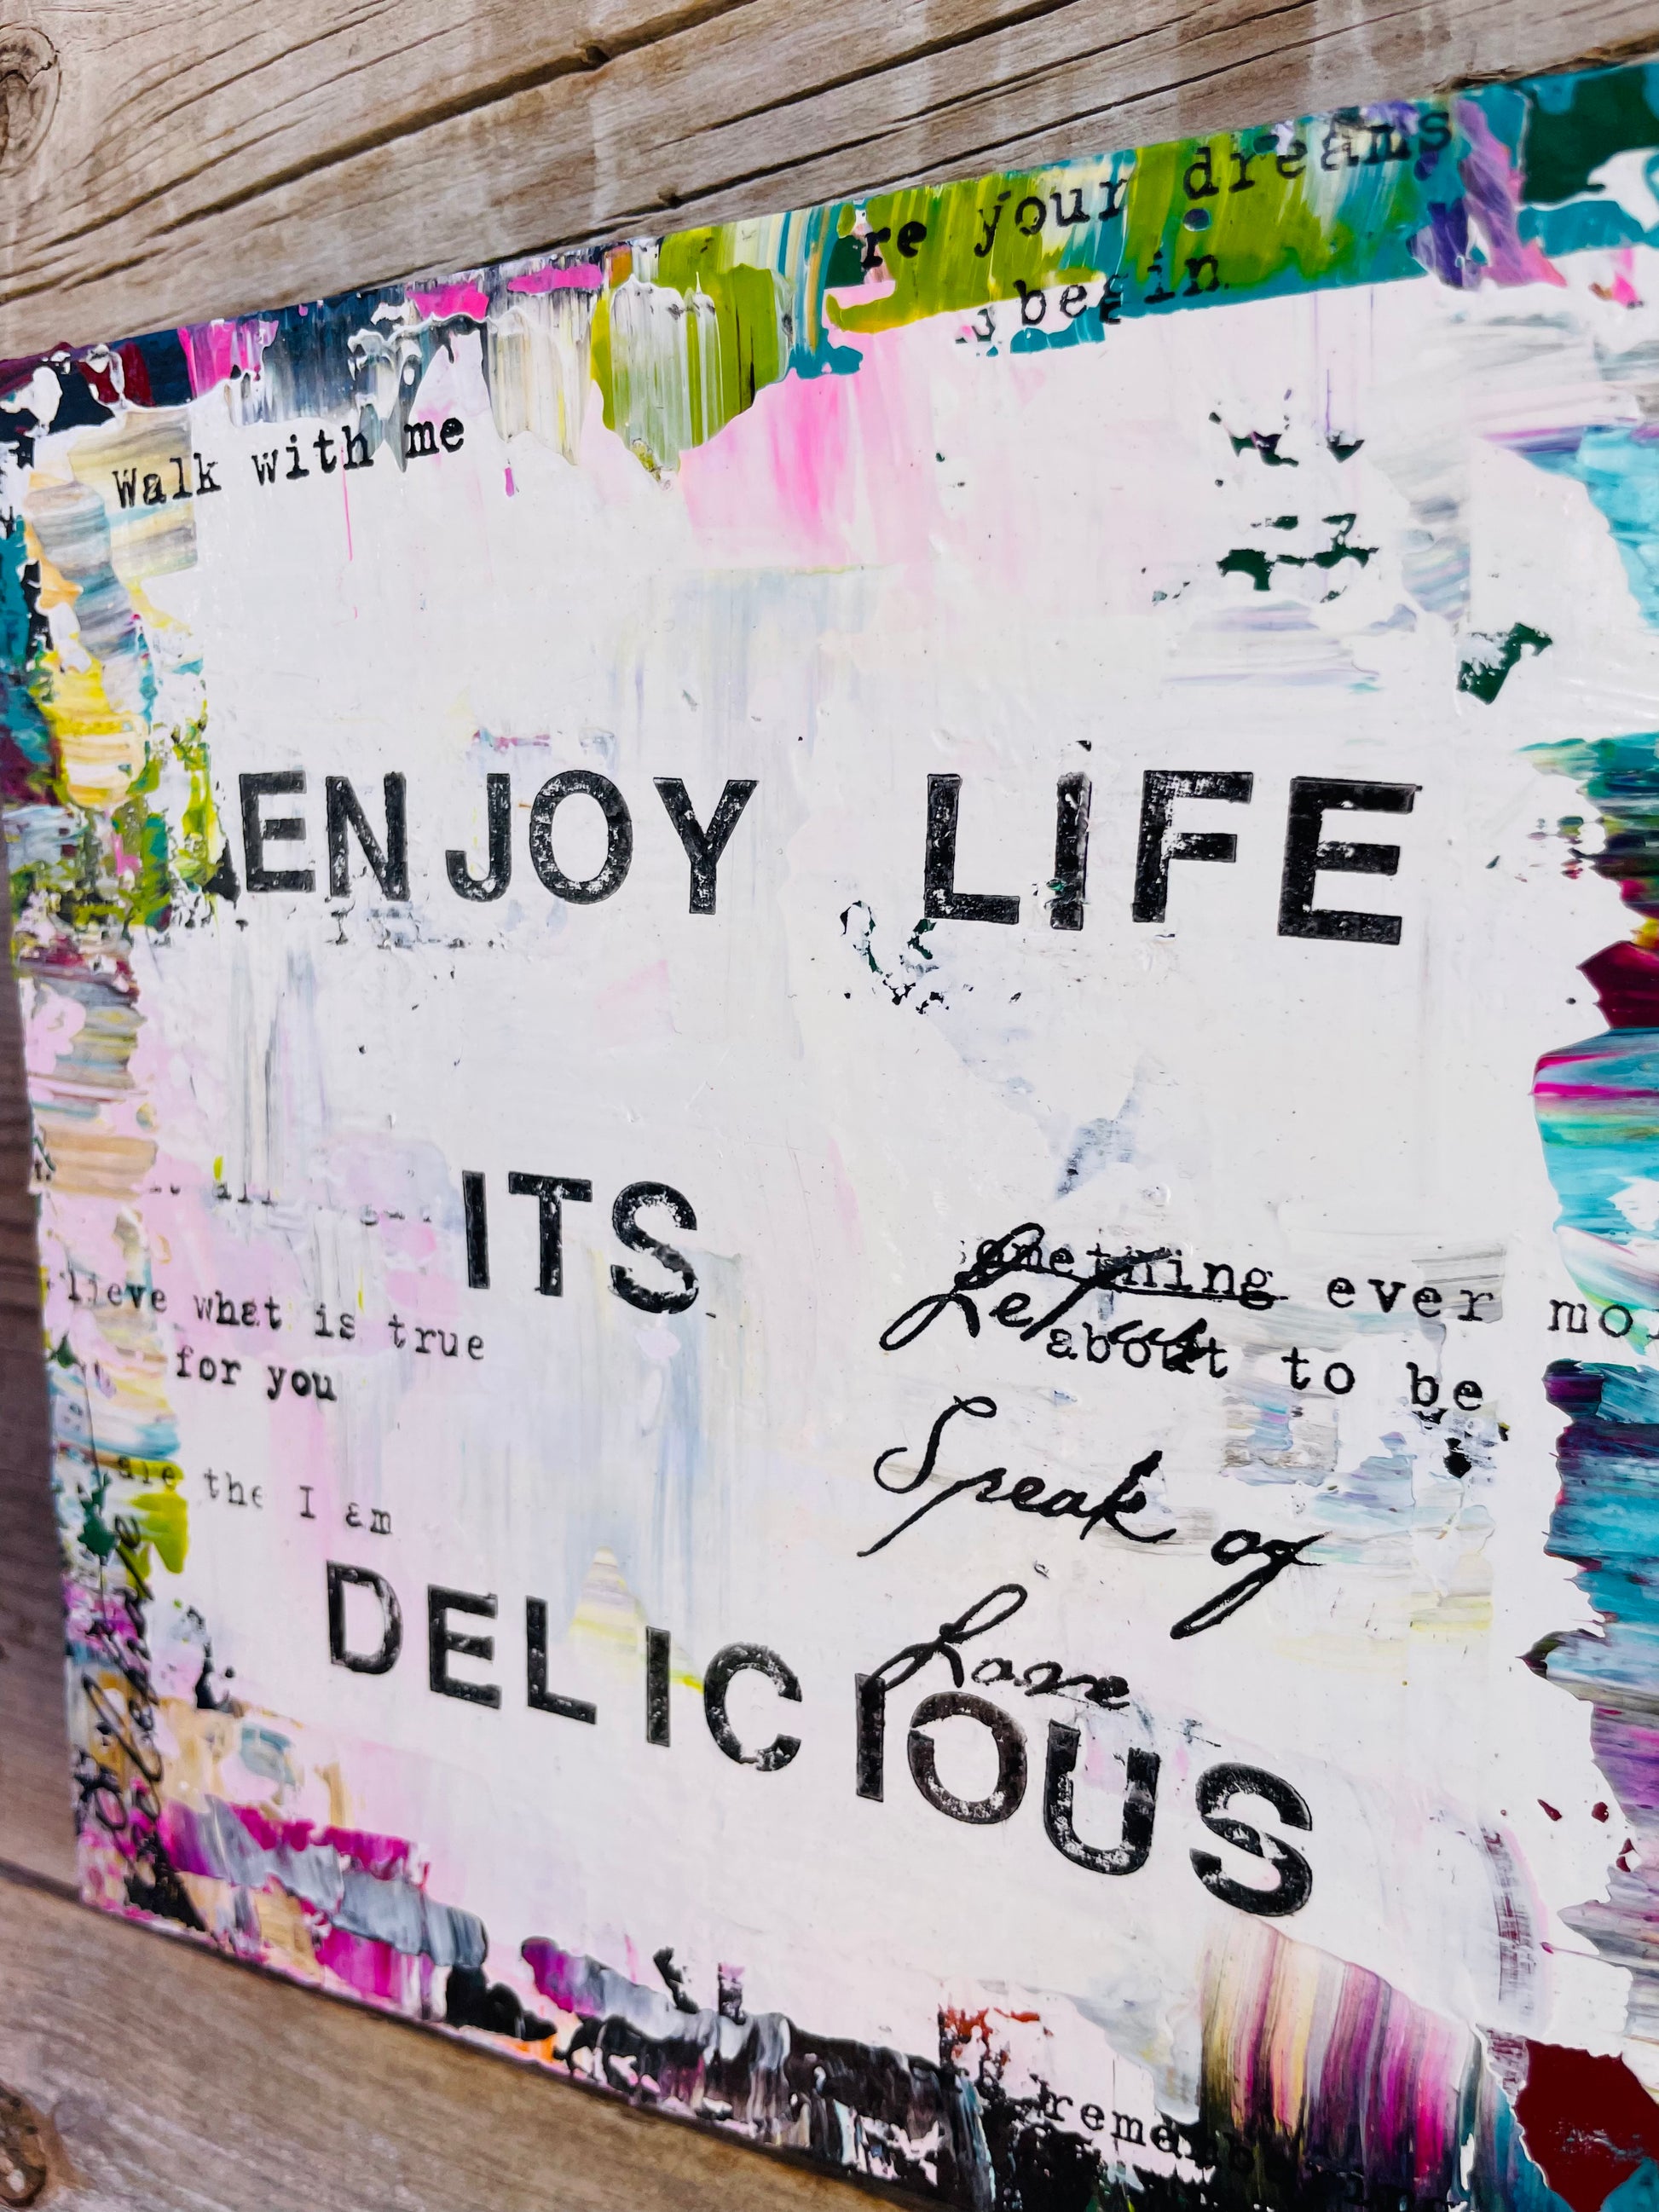 re your dreams
begin
Walk with me
ENJOY LIFE
ITS
something ever mo
Let us
about to be
lieve what is true
for you
Speak of
the I am
Love
DELICIOUS
reme